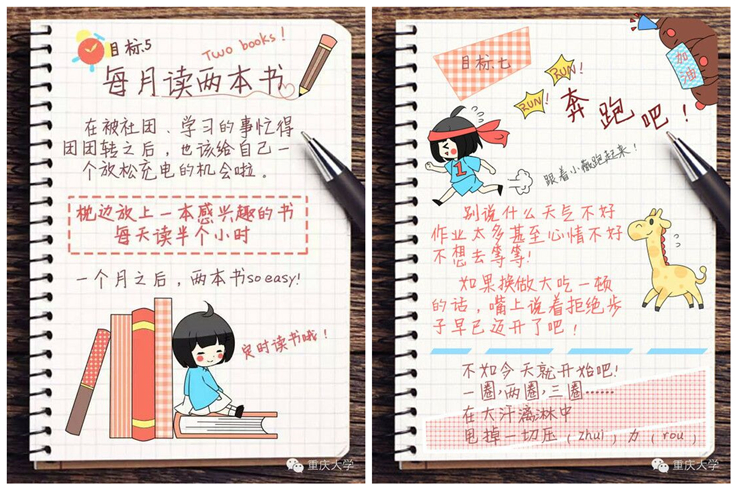 目标.5
Two books!
每月读两本书
在被社团、学习的事忙得
团团转之后，也该给自己一
个放松充电的机会啦。
枕边放上一本感兴趣的书
每天读半个小时
一个月之后，两本书so easy!
定时读书哦！
重庆大学
目标.七
RUN!
RUN!
加油
奔跑吧！
跟着小薇跑起来！
别说什么天气不好
作业太多甚至心情不好
不想去等等!
如果换做大吃一顿
的话，嘴上说着拒绝步
子早已迈开了吧！
不如今天就开始吧!
一圈,两圈,三圈……
在大汗淋漓中
甩掉一切压（zhui）力（rou）
1
重庆大学